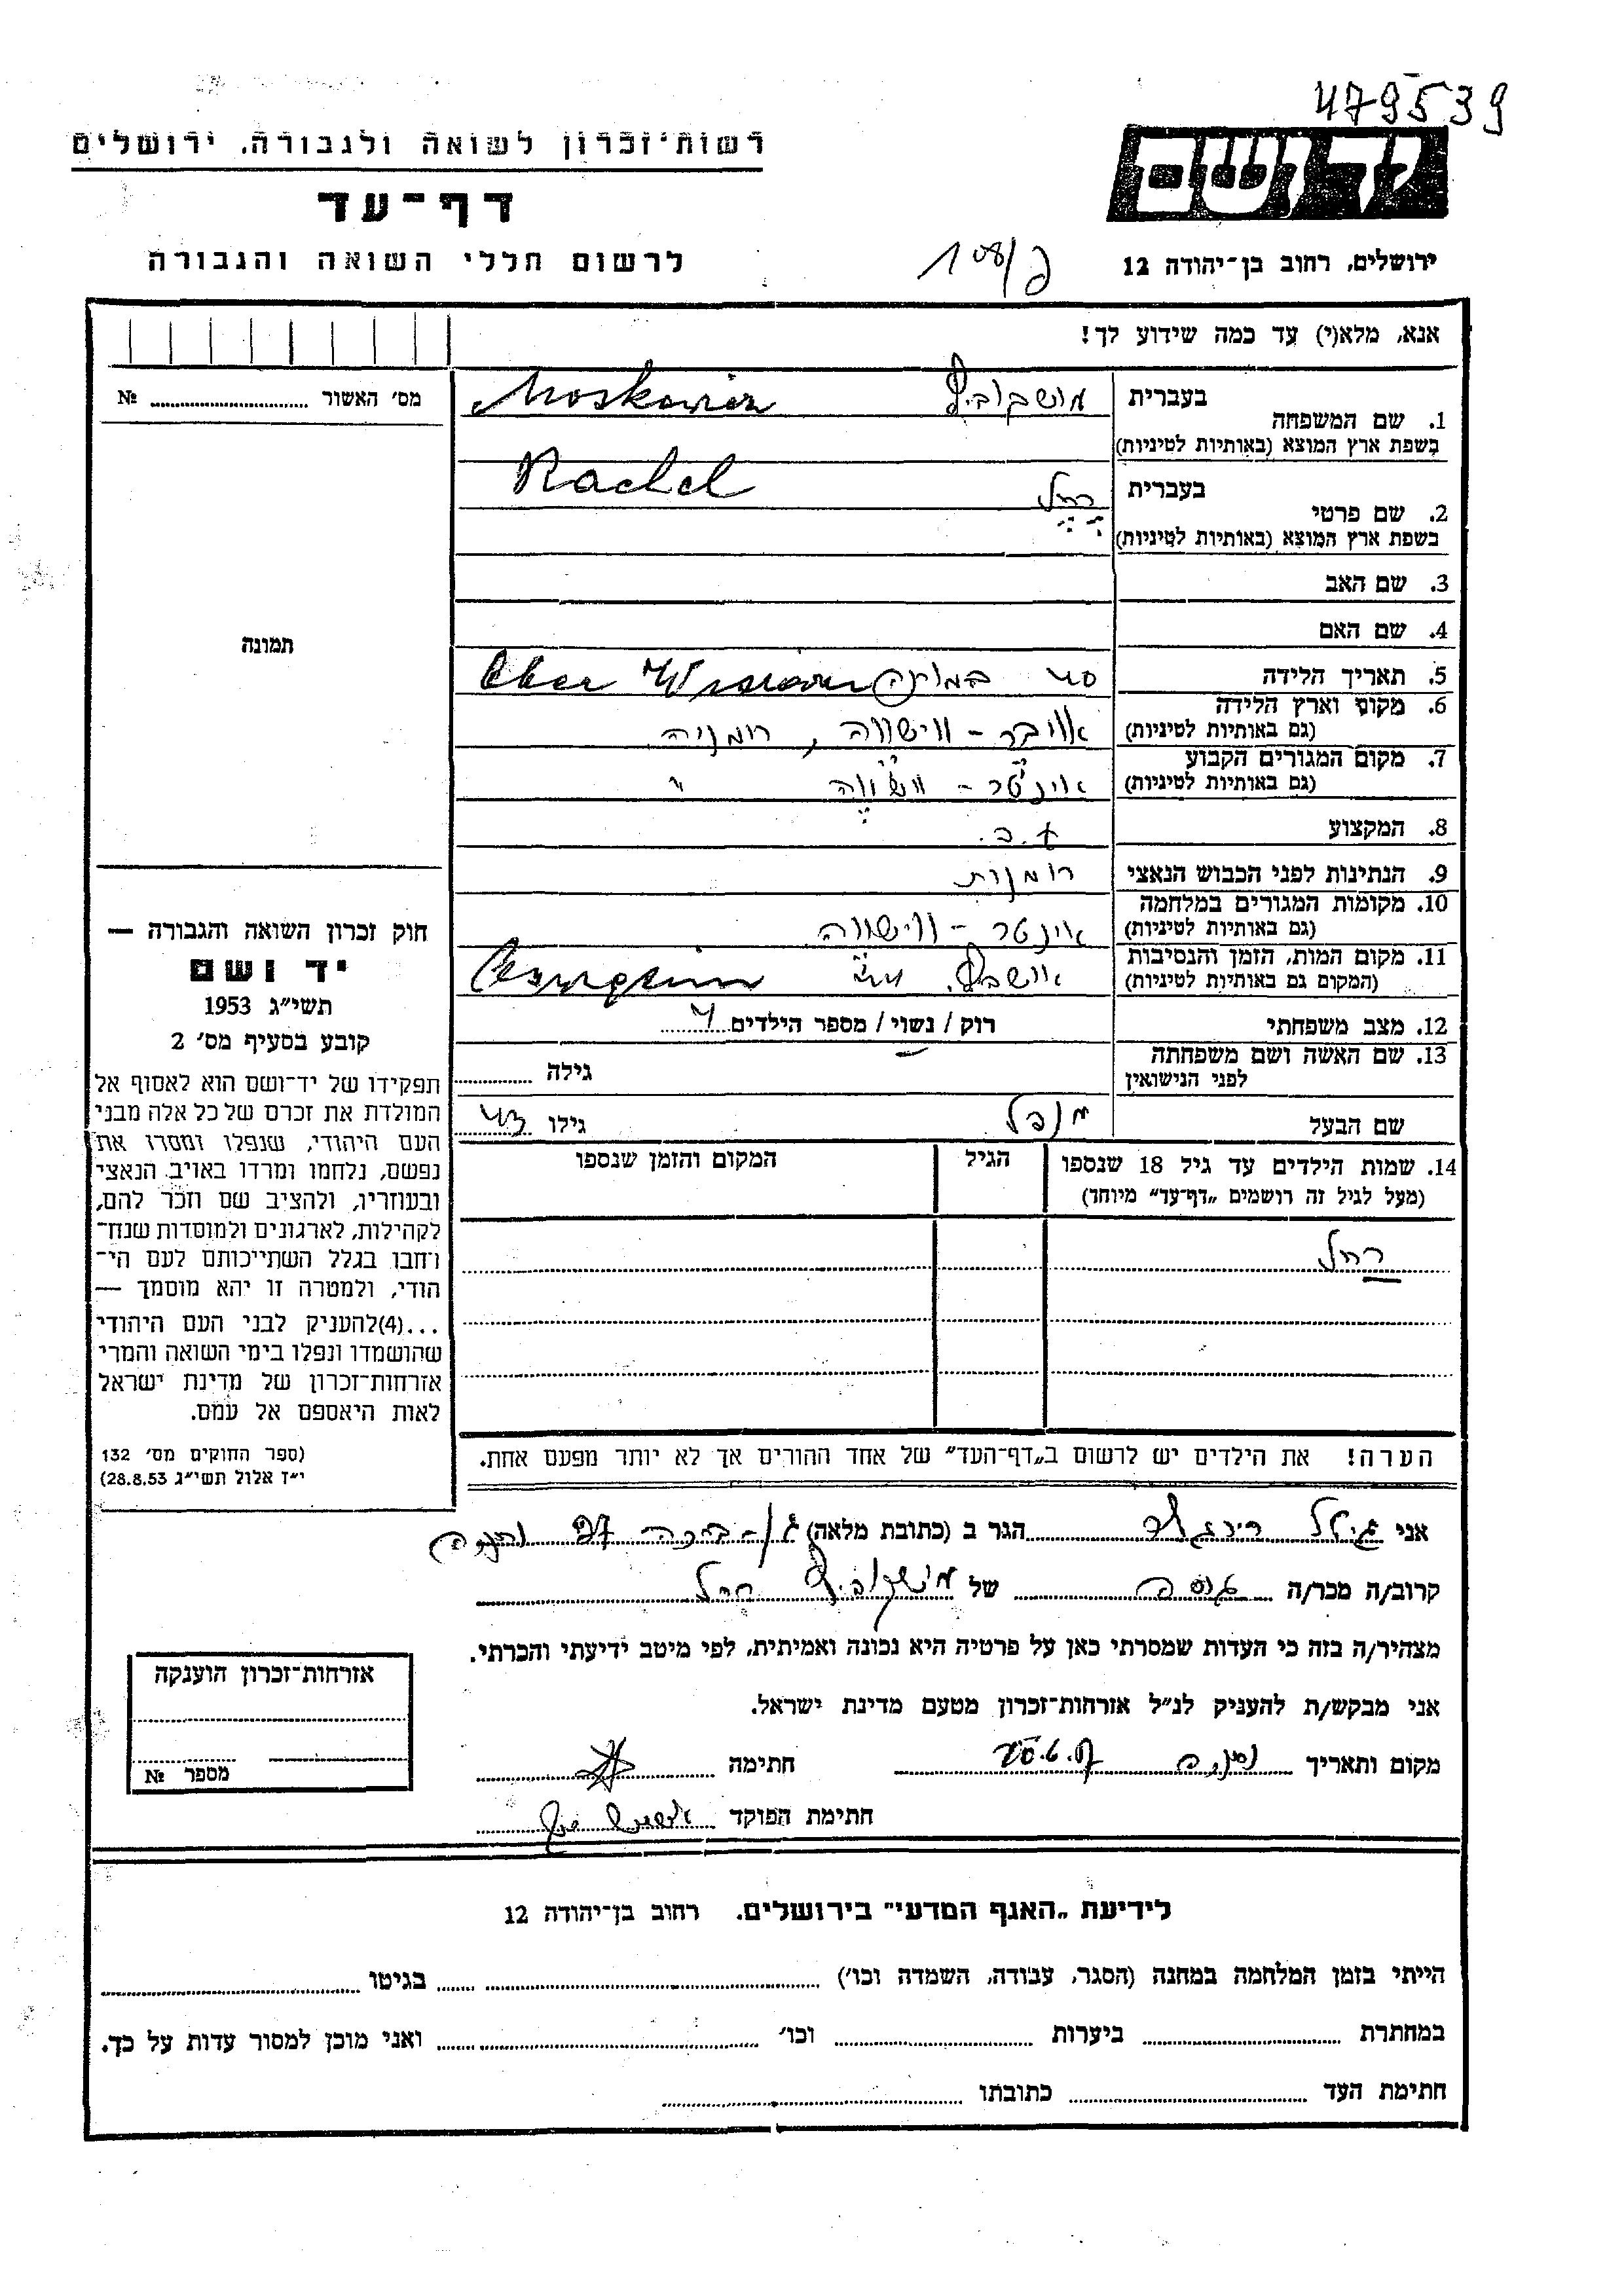 479539
רשות־זכרון לשואה ולגבורה, ירושלים
יד ושם
דף־עד
ירושלים, רחוב בן־יהודה 12
לרשום חללי השואה והגבורה
אנא, מלא(י) עד כמה שידוע לך!
בעברית מושקוביץ
1. שם המשפחה
בשפת ארץ המוצא (באותיות לטיניות)
בעברית רחל Rachel
2. שם פרטי
בשפת ארץ המוצא (באותיות לטיניות)
3. שם האב
4. שם האם
5. תאריך הלידה
6. מקום וארץ הלידה
(גם באותיות לטיניות) אויבר - ווישווה, רומניה
7. מקום המגורים הקבוע
(גם באותיות לטיניות) "
8. המקצוע ע.ב.
9. הנתינות לפני הכבוש הנאצי רומנית
10. מקומות המגורים במלחמה
(גם באותיות לטיניות) אונטר - ווישווה
11. מקום המות, הזמן והנסיבות
(המקום גם באותיות לטיניות)
12. מצב משפחתי רוק / נשוי / מספר הילדים
13. שם האשה ושם משפחתה
לפני הנישואין גילה
שם הבעל גילו
14. שמות הילדים עד גיל 18 שנספו הגיל המקום והזמן שנספו
(מעל לגיל זה רושמים „דף־עד" מיוחד)
רחל
הערה! את הילדים יש לרשום ב„דף־העד" של אחד ההורים אך לא יותר מפעם אחת.
מס׳ האשור №
תמונה
חוק זכרון השואה והגבורה —
יד ושם
תשי״ג 1953
קובע בסעיף מס׳ 2
תפקידו של יד־ושם הוא לאסוף אל
המולדת את זכרם של כל אלה מבני
העם היהודי, שנפלו ומסרו את
נפשם, נלחמו ומרדו באויב הנאצי
ובעוזריו, ולהציב שם וזכר להם,
לקהילות, לארגונים ולמוסדות שנח־
רחבו בגלל השתייכותם לעם הי־
הודי, ולמטרה זו יהא מוסמך —
...(4)להעניק לבני העם היהודי
שהושמדו ונפלו בימי השואה והמרי
אזרחות־זכרון של מדינת ישראל
לאות היאספם אל עמם.
(ספר החוקים מס׳ 132
י״ז אלול תשי״ג 28.8.53)
אני הגר ב (כתובת מלאה)
קרוב/ה מכר/ה של מושקוביץ רחל
מצהיר/ה בזה כי העדות שמסרתי כאן על פרטיה היא נכונה ואמיתית, לפי מיטב ידיעתי והכרתי.
אני מבקש/ת להעניק לנ״ל אזרחות־זכרון מטעם מדינת ישראל.
מקום ותאריך חתימה
חתימת הפוקד
אזרחות־זכרון הוענקה
מספר №
לידיעת „האגף המדעי" בירושלים. רחוב בן־יהודה 12
הייתי בזמן המלחמה במחנה (הסגר, עבודה, השמדה וכו׳) בגיטו
במחתרת ביערות וכו׳ ואני מוכן למסור עדות על כך.
חתימת העד כתובתו